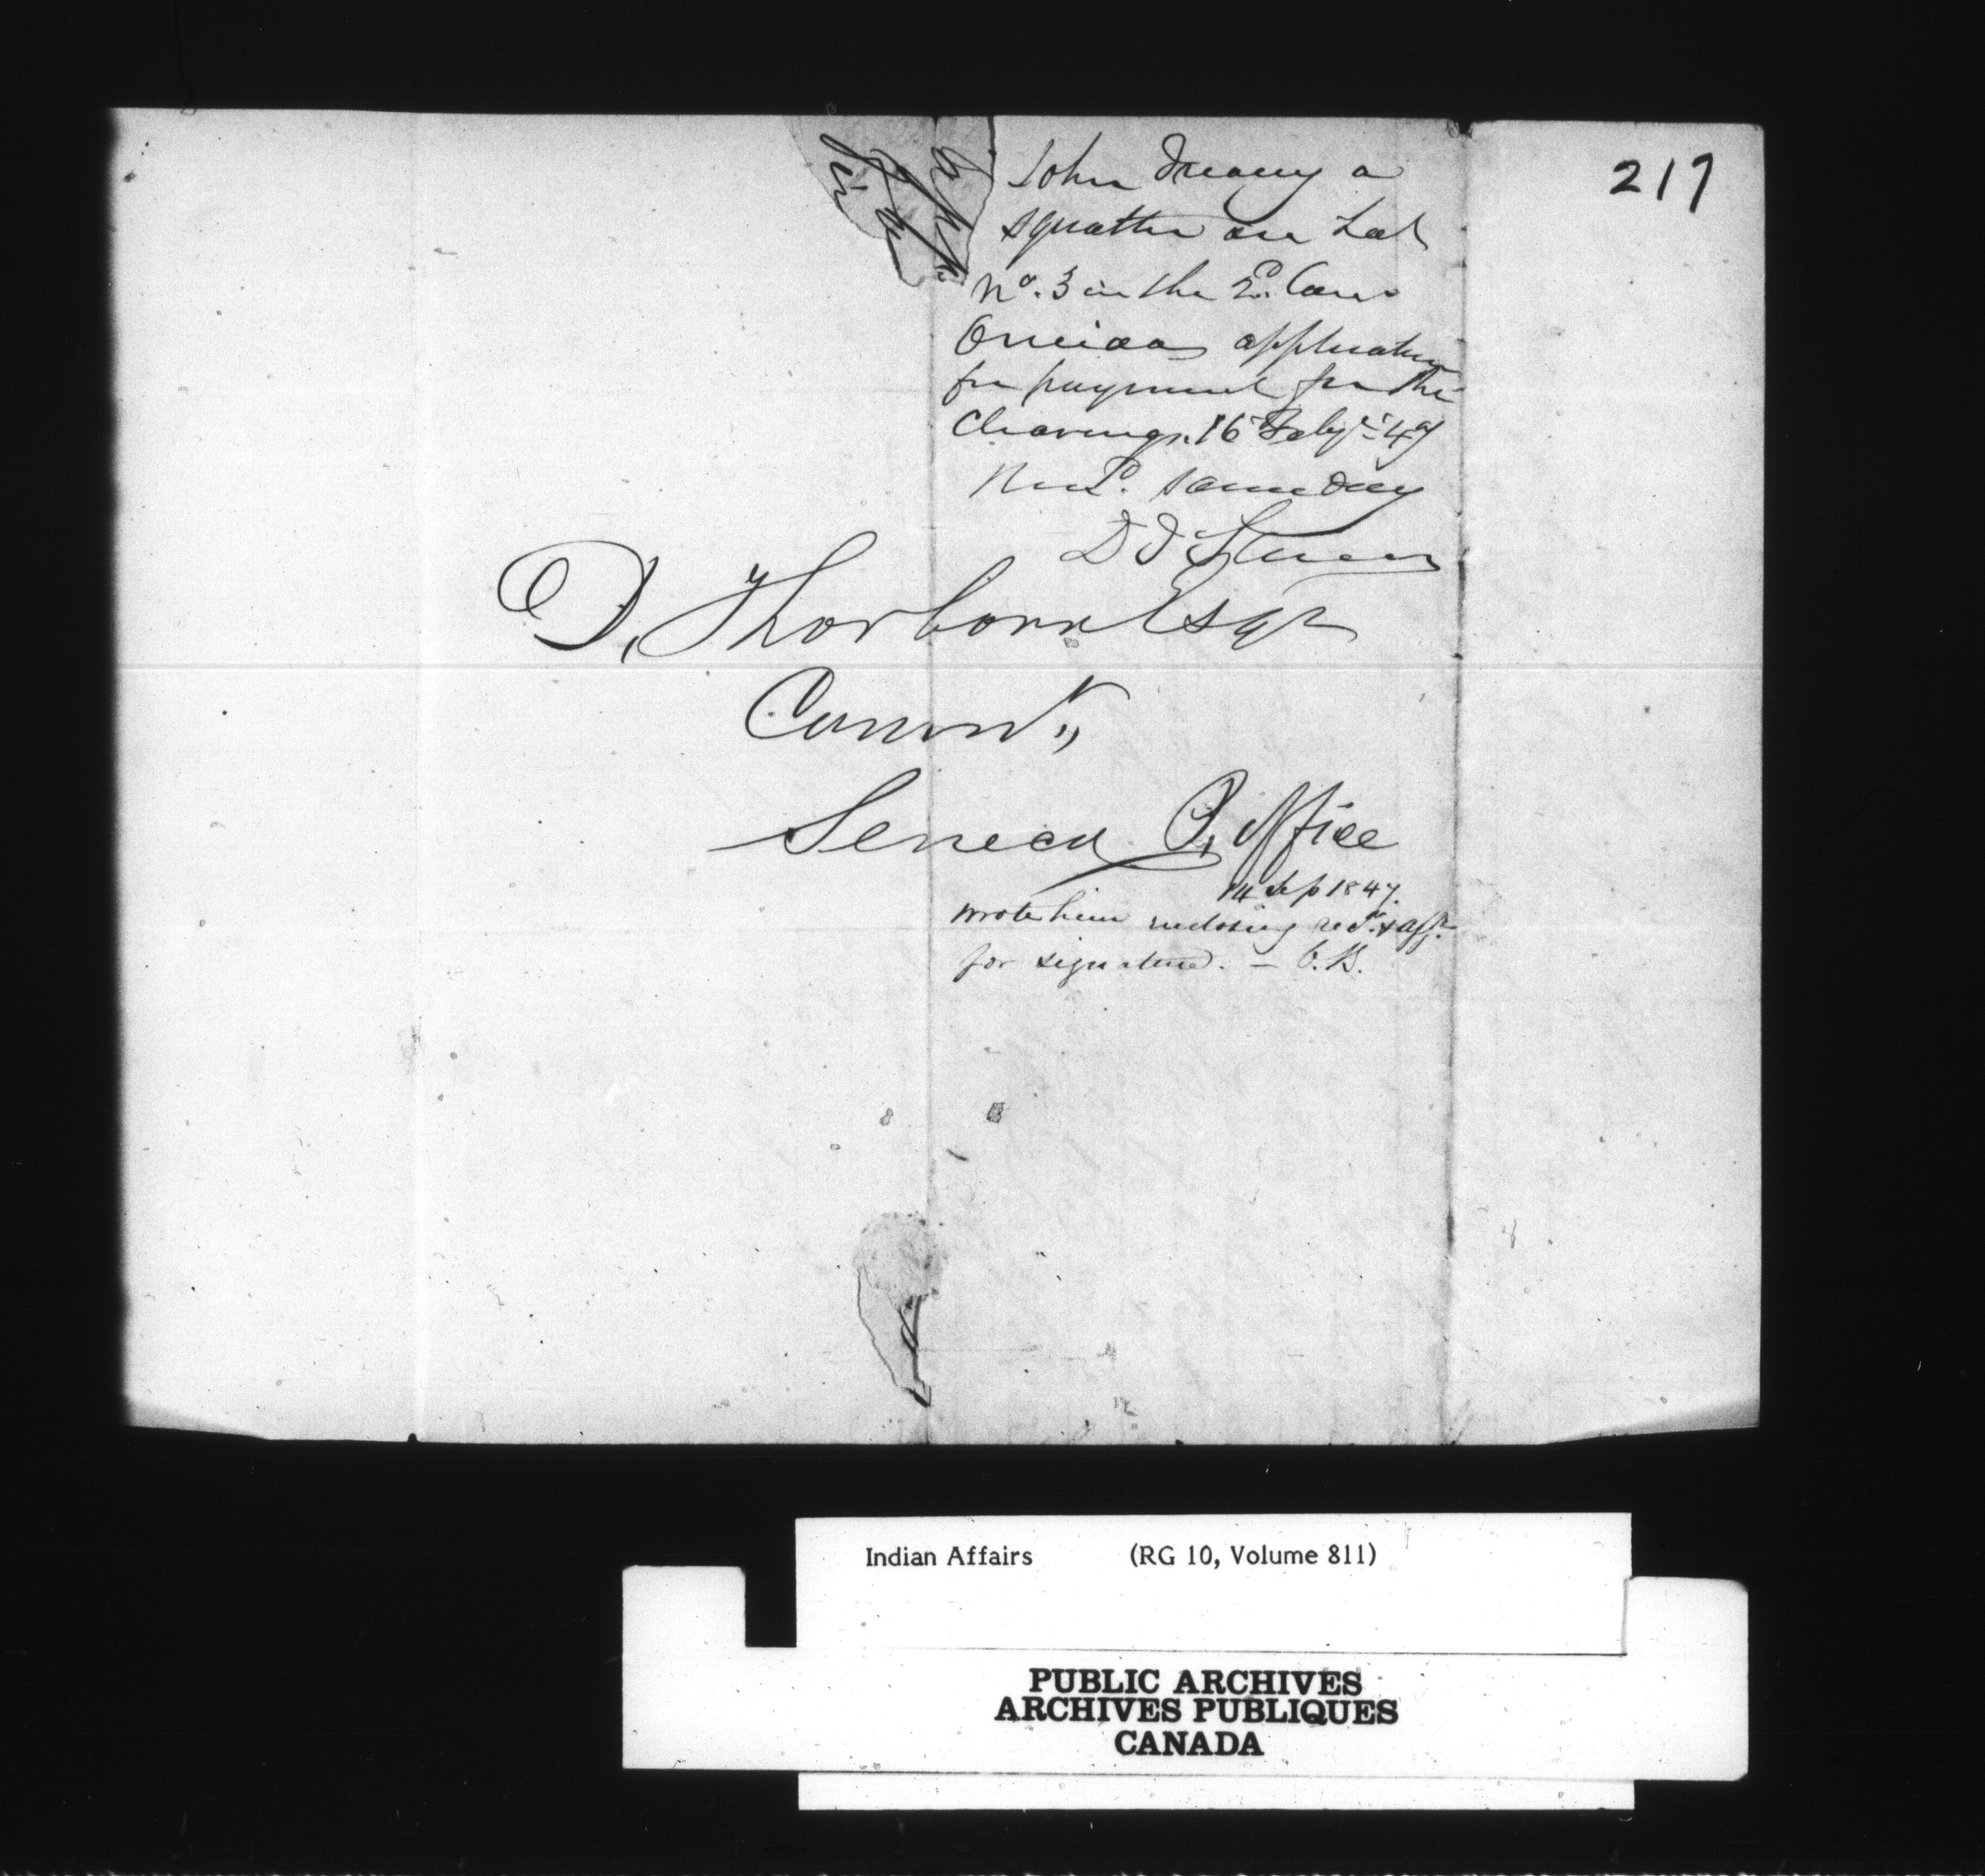 217
John a
squatter on Lot
No. 3 in the Con
Oneida application
for payment for the
Clearings. 16 Feby 47
Recd. same day
D. Thorborn Esqr
Commr.,
Seneca P, Office
14 Sep 1847.
wrote him enclosing &
for signature. —
Indian Affairs (RG 10, Volume 811)
PUBLIC ARCHIVES
ARCHIVES PUBLIQUES
CANADA